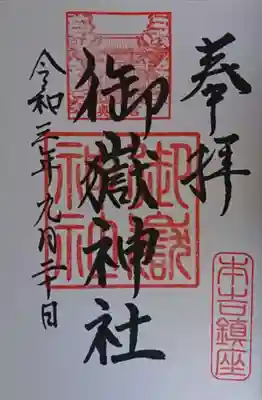 奉拝
御嶽神社
令和三年九月二十日
御嶽神社
本古鎮座